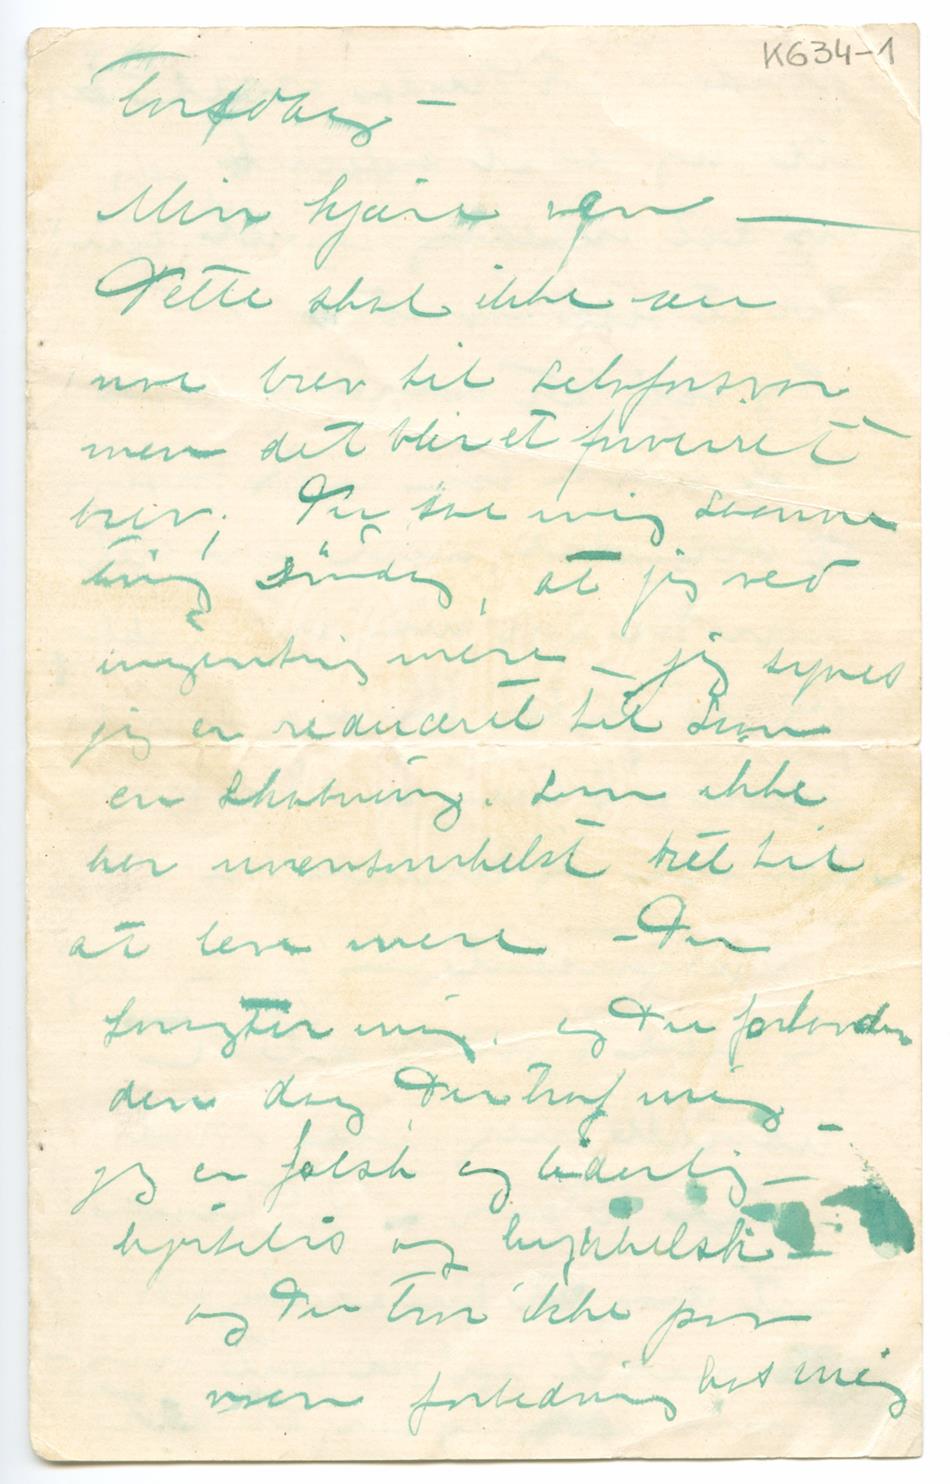 K634-1
Torsdag –
Min kjære ven —
Dette skal ikke være
noe brev til selvforsvar
men det blir et forvirret
brev; Du sae mig saanne
ting søndag, at jeg ved
ingenting mere – jeg synes
jeg er reduceret til som
en skabning, som ikke
har noensomhelst ret til
at leve mere – Du
foragter mig, og Du forbander
den dag Du traf mig –
jeg er falsk og liderlig –
hjerteløs og hykkelsk –
og Du tror ikke paa
noen forbedring hos mig